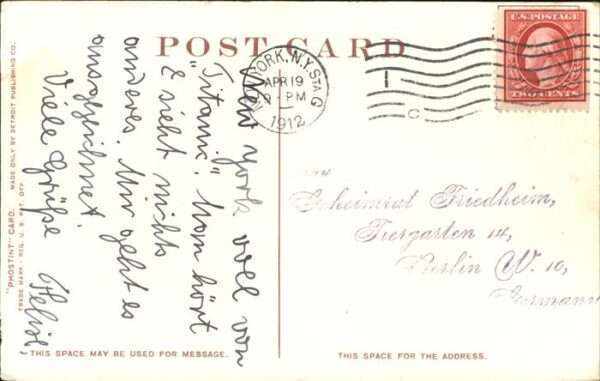 POST CARD
U.S. POSTAGE
TWO CENTS
NEW YORK, N.Y. STA. G
APR 19
PM
1912
C
New york voll von
"Titanic". Man hört
& sieht nichts
anderes. Mir geht es
ausgezeichnet.
Viele Grüße Felix
Geheimrat Friedheim,
Tiergarten 14,
Berlin W. 10,
Germany
"PHOSTINT" CARD. MADE ONLY BY DETROIT PUBLISHING CO.
TRADE MARK - REG. U. S. PAT. OFF.
THIS SPACE MAY BE USED FOR MESSAGE.
THIS SPACE FOR THE ADDRESS.